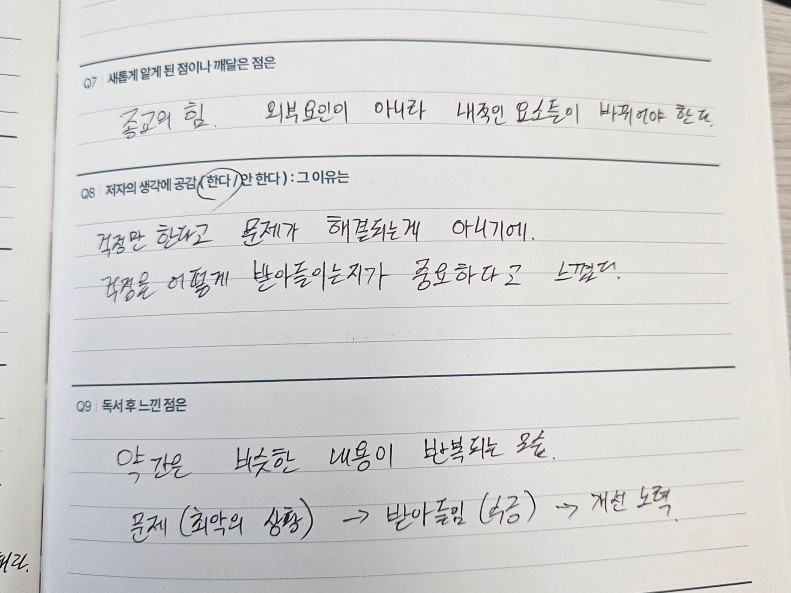 Q7 새롭게 알게 된 점이나 깨달은 점은
종교의 힘. 외부요인이 아니라 내적인 요소들이 바뀌어야 한다.
Q8 저자의 생각에 공감 (한다 / 안 한다) : 그 이유는
걱정만 한다고 문제가 해결되는게 아니기에.
걱정을 어떻게 받아들이는지가 중요하다고 느꼈다.
Q9 독서 후 느낀 점은
약간은 비슷한 내용이 반복되는 모습.
문제 (최악의 상황) → 받아들임 (수긍) → 개선 노력.